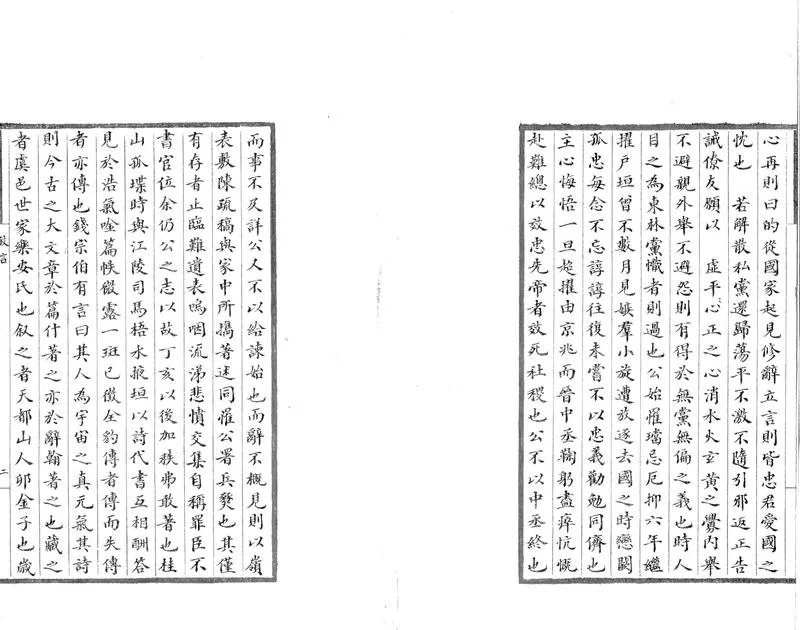 心再則曰的從國家起見修辭立言則皆忠君愛國之
忱也　若解散私黨還歸蕩平不激不隨引邪返正告
誡僚友願以　虛平心正之心消水火玄黃之釁內舉
不避親外舉不避怨則有得於無黨無偏之義也時人
目之為東林黨懺者則過也公始罹璫忌厄抑六年繼
擢戶垣曾不數月見嫉羣小旋遭放逐去國之時戀闕
孤忠每念不忘諄諄往復未嘗不以忠義勸勉同儕也
主心悔悟一旦超擢由京兆而晉中丞鞠躬盡瘁忼慨
赴難總以效忠先帝者效死社稷也公不以中丞終也
而事不及詳公又不以給諫始也而辭不概見則以嶺
表敷陳疏稿與家中所攜著述同罹公署兵燹也其僅
有存者止臨難遺表嗚咽流涕悲憤交集自稱罪臣不
書官位余仍公之志以故丁亥以後加秩弗敢著也桂
山孤堞時與江陵司馬梧水掖垣以詩代書互相酬答
見於浩氣唫篇帙微露一斑已徵全豹傳者傳而失傳
者亦傳也錢宗伯有言曰其人為宇宙之真元氣其詩
則今古之大文章於篇什著之亦於辭翰著之也藏之
者虞邑世家樂安氏也叙之者天都山人卯金子也歲
二